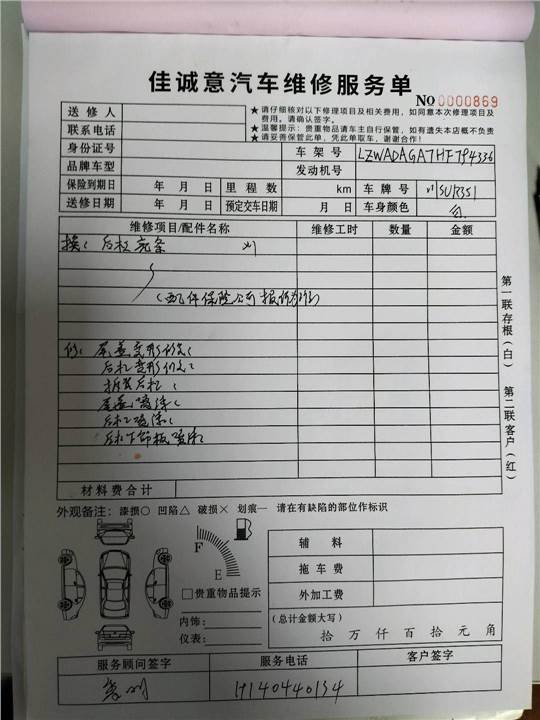 佳诚意汽车维修服务单
NO 0000869
送修人
联系电话
★请仔细核对以下修理项目及相关费用，如同意本次修理项目及
费用。请确认签字。
★温馨提示：贵重物品请车主自行保管，如有遗失本店概不负责
★请妥善保管此单，凭此单取车，谢谢合作！
身份证号 车架号 LZWADAGA7HF794336
品牌车型 发动机号
保险到期日 年 月 日 里程数 km 车牌号 川SUR351
送修日期 年 月 日 预定交车日期 月 日 车身颜色
维修项目/配件名称 维修工时 数量 金额
换： 后杠亮条
（配件保险公司报价
修： 尾盖变形修复
后杠变形修复
拆装后杠
尾盖喷漆
后杠喷漆
后杠下饰板喷漆
第一联存根（白） 第二联客户（红）
材料费合计
外观备注：漆损○ 凹陷△ 破损× 划痕一 请在有缺陷的部位作标识
F
E
□贵重物品提示
内饰：
仪表：
辅料
拖车费
外加工费
（总计金额大写）
拾 万 仟 百 拾 元 角
服务顾问签字 服务电话 客户签字